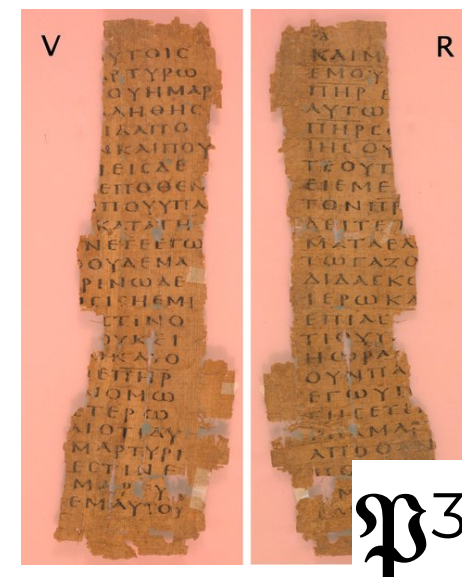 V
ΥΤΟΙϹ
ΡΤΥΡΩ
ΟΥΗΜΑΡ
ΛΗΘΗϹ
ΙΔΑΠΟ
ΚΑΙΠΟΥ
ΕΙϹΔΕ
ΕΠΟΘΕΝ
ΠΟΥΥΠΑ
ΚΑΤΑΤΗ
ΝΕΤΕΕΓΩ
ΟΥΔΕΝΑ
ΡΙΝΩΔΕ
ϹΙϹΗΕΜΙ
ϹΤΙΝΟ
ΟΥΚΕΙ
ΚΑΙΟ
ΕΠΗΡ
ΝΟΜΩ
ΤΕΡΩ
ΑΙΟΤΙΔΥ
ΜΑΡΤΥΡΙ
ΕϹΤΙΝΕ
ΜΑΡ Υ
ΕΜΑΥΤΟΥ
R
ΚΑΙΜ
ΕΜΟΥ
ΠΗΡ Ε
ΑΥΤΩ
ΠΗΡϹΟ
ΙΗϹΟΥ
ΤΕΟΥΤ
ΕΙΕΜΕ
ΤΟΝΠΡ
ΔΕΙΤΕΤ
ΜΑΤΑΕΛ
ΤΩΓΑΖΟ
ΔΙΔΑϹΚ
ΙΕΡΩΚΑ
ΕΠΙΑϹ
ΤΙΟΥΠ
ΗΩΡΑ
ΟΥΝΠΑ
ΕΓΩΥΠ
ΤΗϹΕΤΕ
ΑΜΑΡ
ΑΠΟΘ
𝔓3